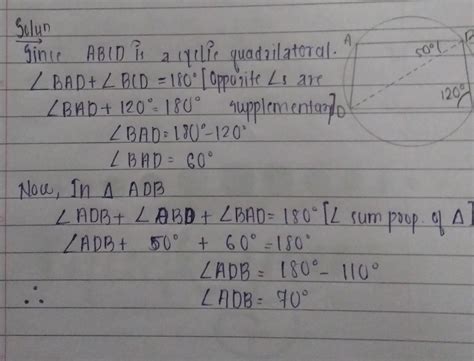 Soluⁿ
Since ABCD is a cyclic quadrilateral.
∠BAD + ∠BCD = 180° [Opposite ∠s are
∠BAD + 120° = 180° supplementary]
∠BAD = 180° - 120°
∠BAD = 60°
Now, In Δ ADB
∠ADB + ∠ABD + ∠BAD = 180° [∠ sum prop. of Δ]
∠ADB + 50° + 60° = 180°
∠ADB = 180° - 110°
∴ ∠ADB = 70°
A
B
50°
120°
D